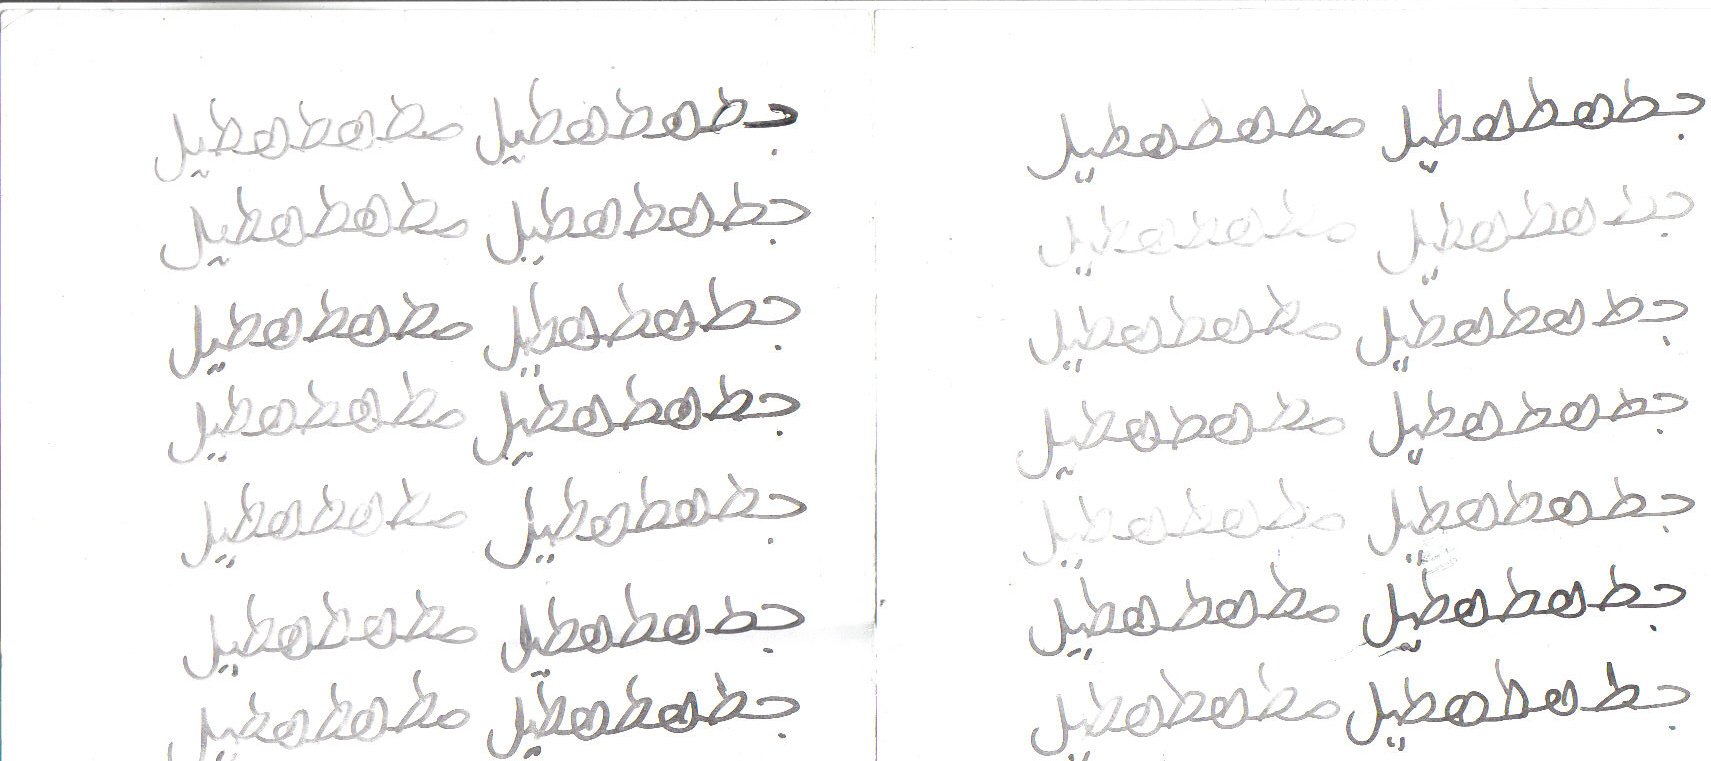 جطهطهطيل مطهطهطيل
جطهطهطيل مطهطهطيل
جطهطهطيل مطهطهطيل
جطهطهطيل مطهطهطيل
جطهطهطيل مطهطهطيل
جطهطهطيل مطهطهطيل
جطهطهطيل مطهطهطيل
جطهطهطيل مطهطهطيل
جطهطهطيل مطهطهطيل
جطهطهطيل مطهطهطيل
جطهطهطيل مطهطهطيل
جطهطهطيل مطهطهطيل
جطهطهطيل مطهطهطيل
جطهطهطيل مطهطهطيل